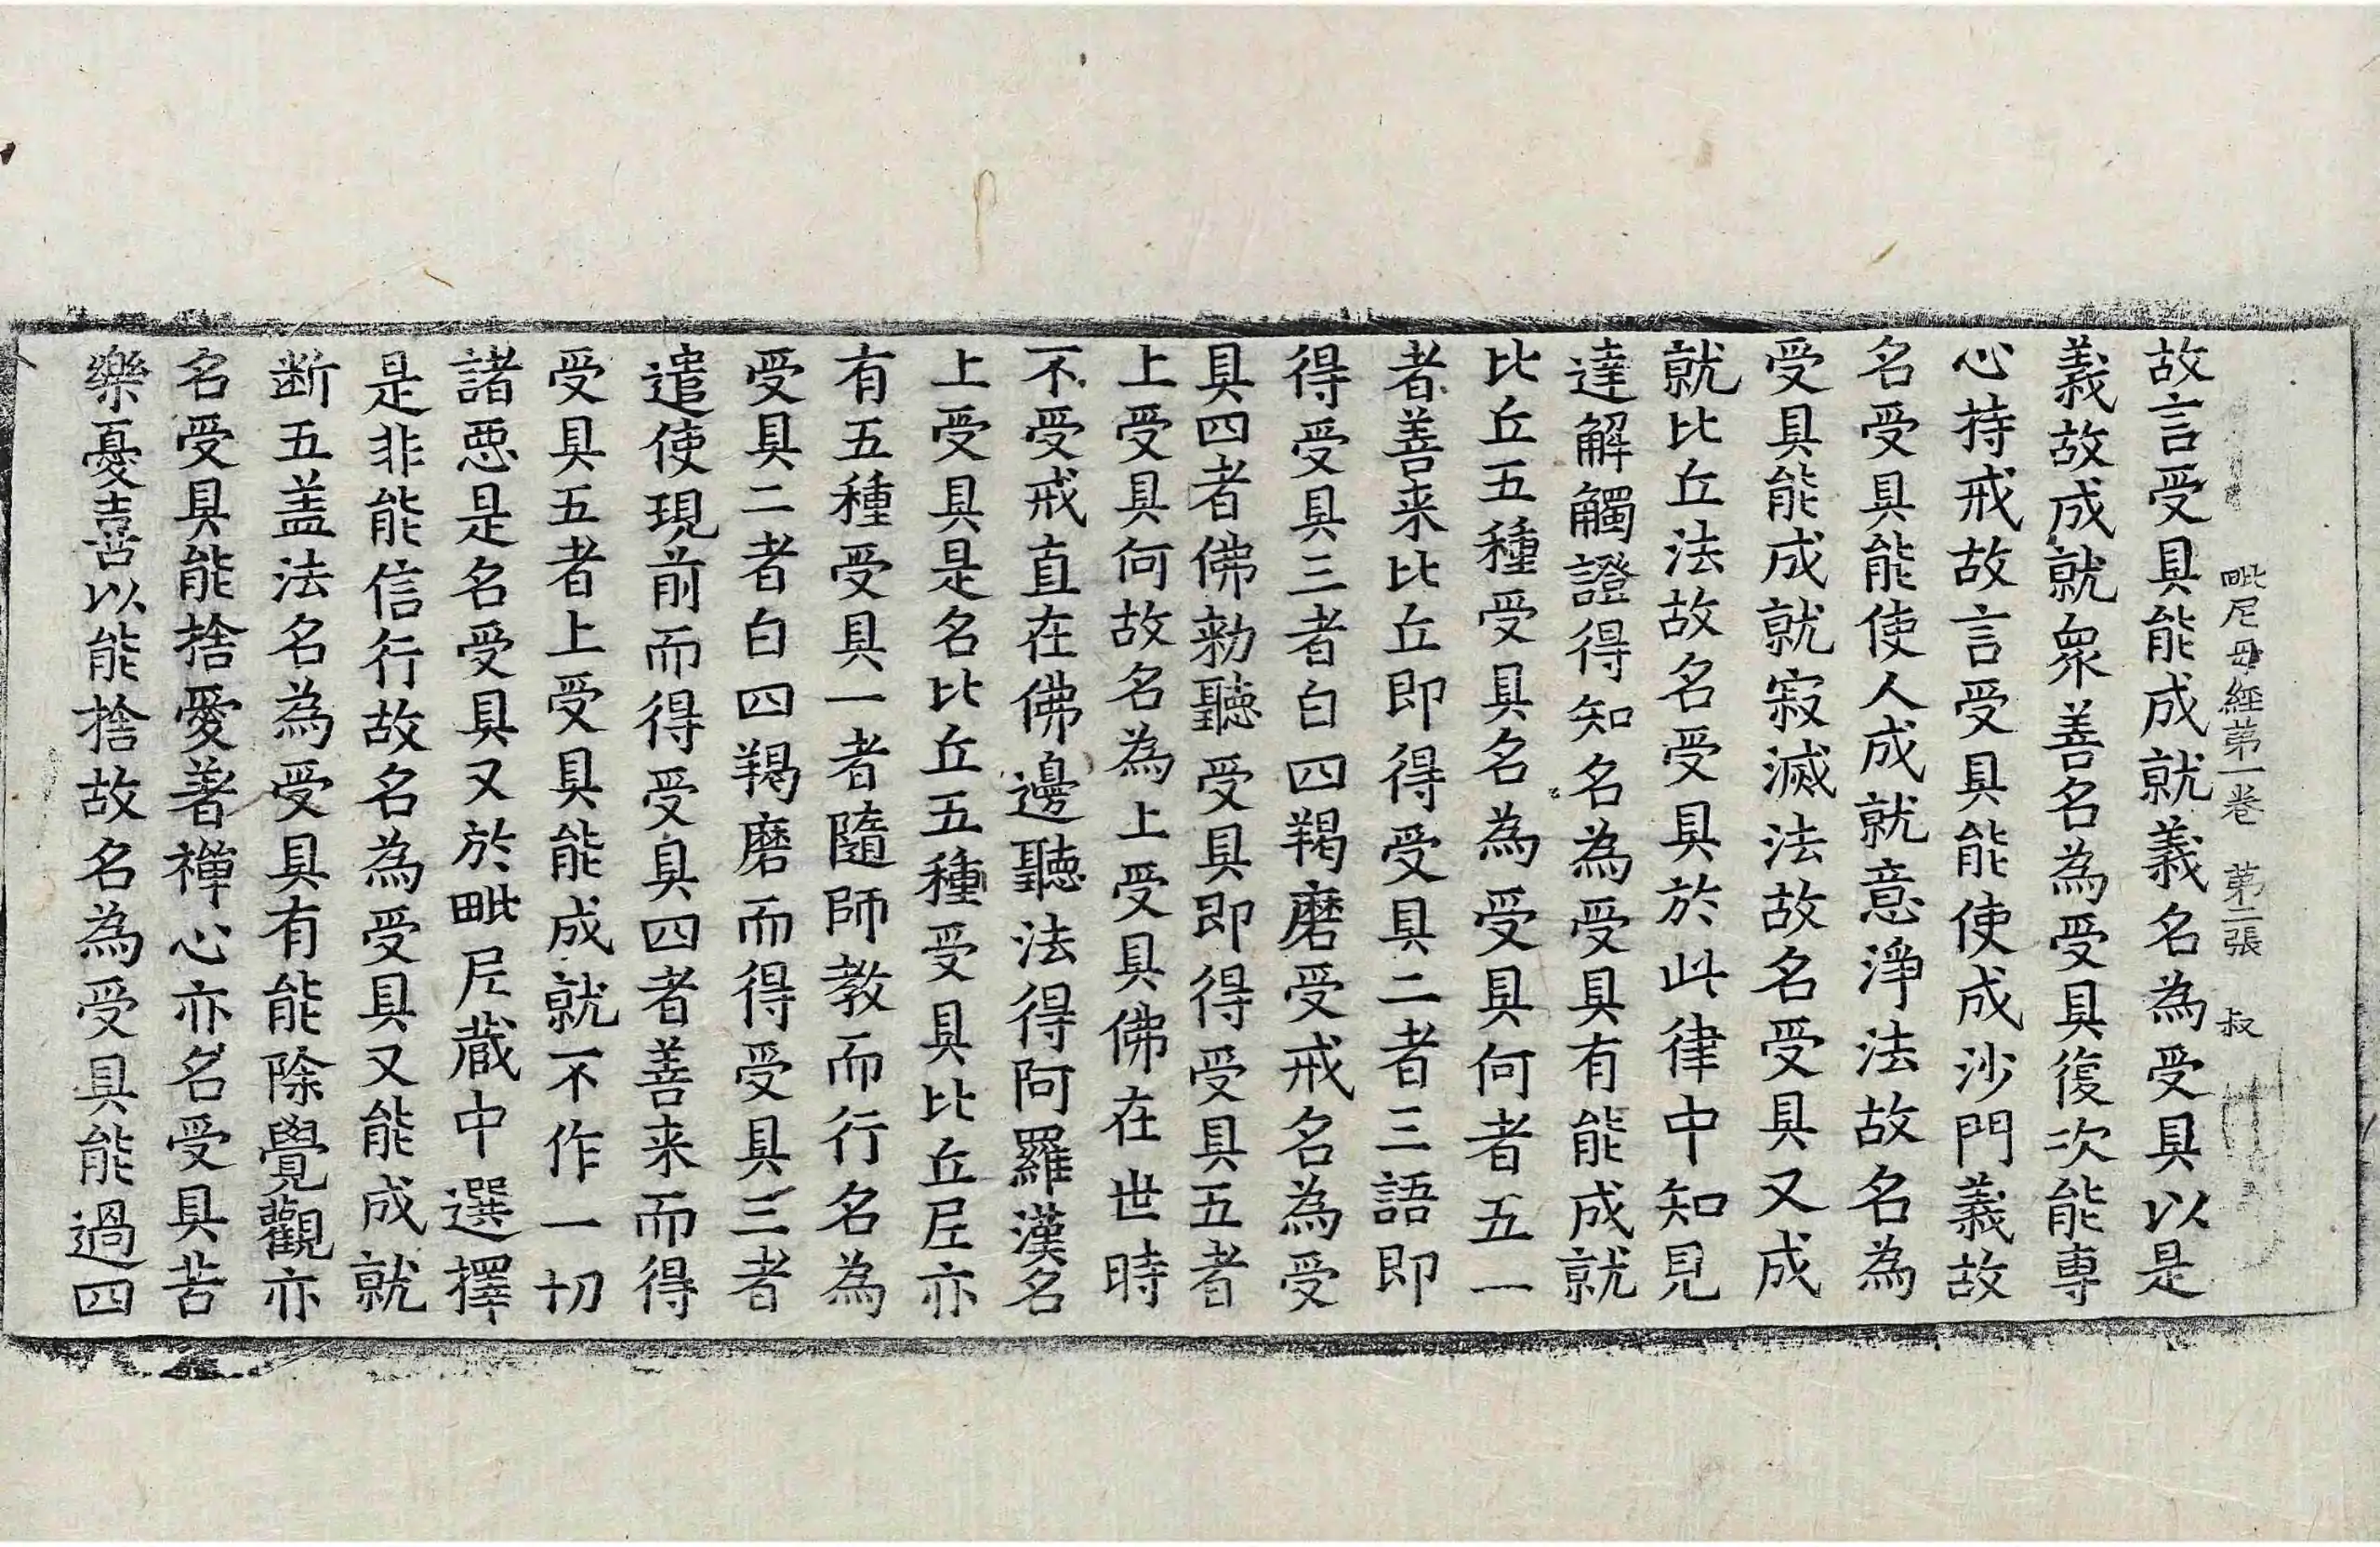 毗尼母經第一卷　第二張　叔
故言受具能成就義名為受具以是
義故成就衆善名為受具復次能專
心持戒故言受具能使成沙門義故
名受具能使人成就意淨法故名為
受具能成就寂滅法故名受具又成
就比丘法故名受具於此律中知見
達解觸證得知名為受具有能成就
比丘五種受具名為受具何者五一
者善来比丘即得受具二者三語即
得受具三者白四羯磨受戒名為受
具四者佛勑聽受具即得受具五者
上受具何故名為上受具佛在世時
不受戒直在佛邊聽法得阿羅漢名
上受具是名比丘五種受具比丘尼亦
有五種受具一者隨師教而行名為
受具二者白四羯磨而得受具三者
遣使現前而得受具四者善来而得
受具五者上受具能成就不作一切
諸惡是名受具又於毗尼蔵中選擇
是非能信行故名為受具又能成就
断五盖法名為受具有能除覺觀亦
名受具能捨愛著禪心亦名受具苦
樂憂喜以能捨故名為受具能過四